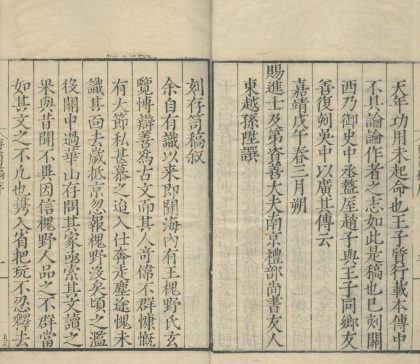 天年功用未起命也王子皆行載本傳中
不具論論作者之志如此是稿也已刻關
西乃御史中丞盩厔趙子與王子同鄉友
善復刻吳中以廣其傳云
嘉靖戊午春三月朔
賜進士及第資善大夫南京禮部尚書友人
東越孫陞譔
刻存笥稿叙
余自有識以来即聞海內有王槐野氏玄
覽博辯善為古文而其人竒偉不群慷慨
有大節私甚慕之迨入仕奔走塵途愧未
識其面去嵗抵京忽報槐野沒矣頃之濫
後關中過華山存問其家亟索其文讀之
果與昔聞不異因信槐野人品之不群當
如其文之不凡也携入省把玩不忍釋去